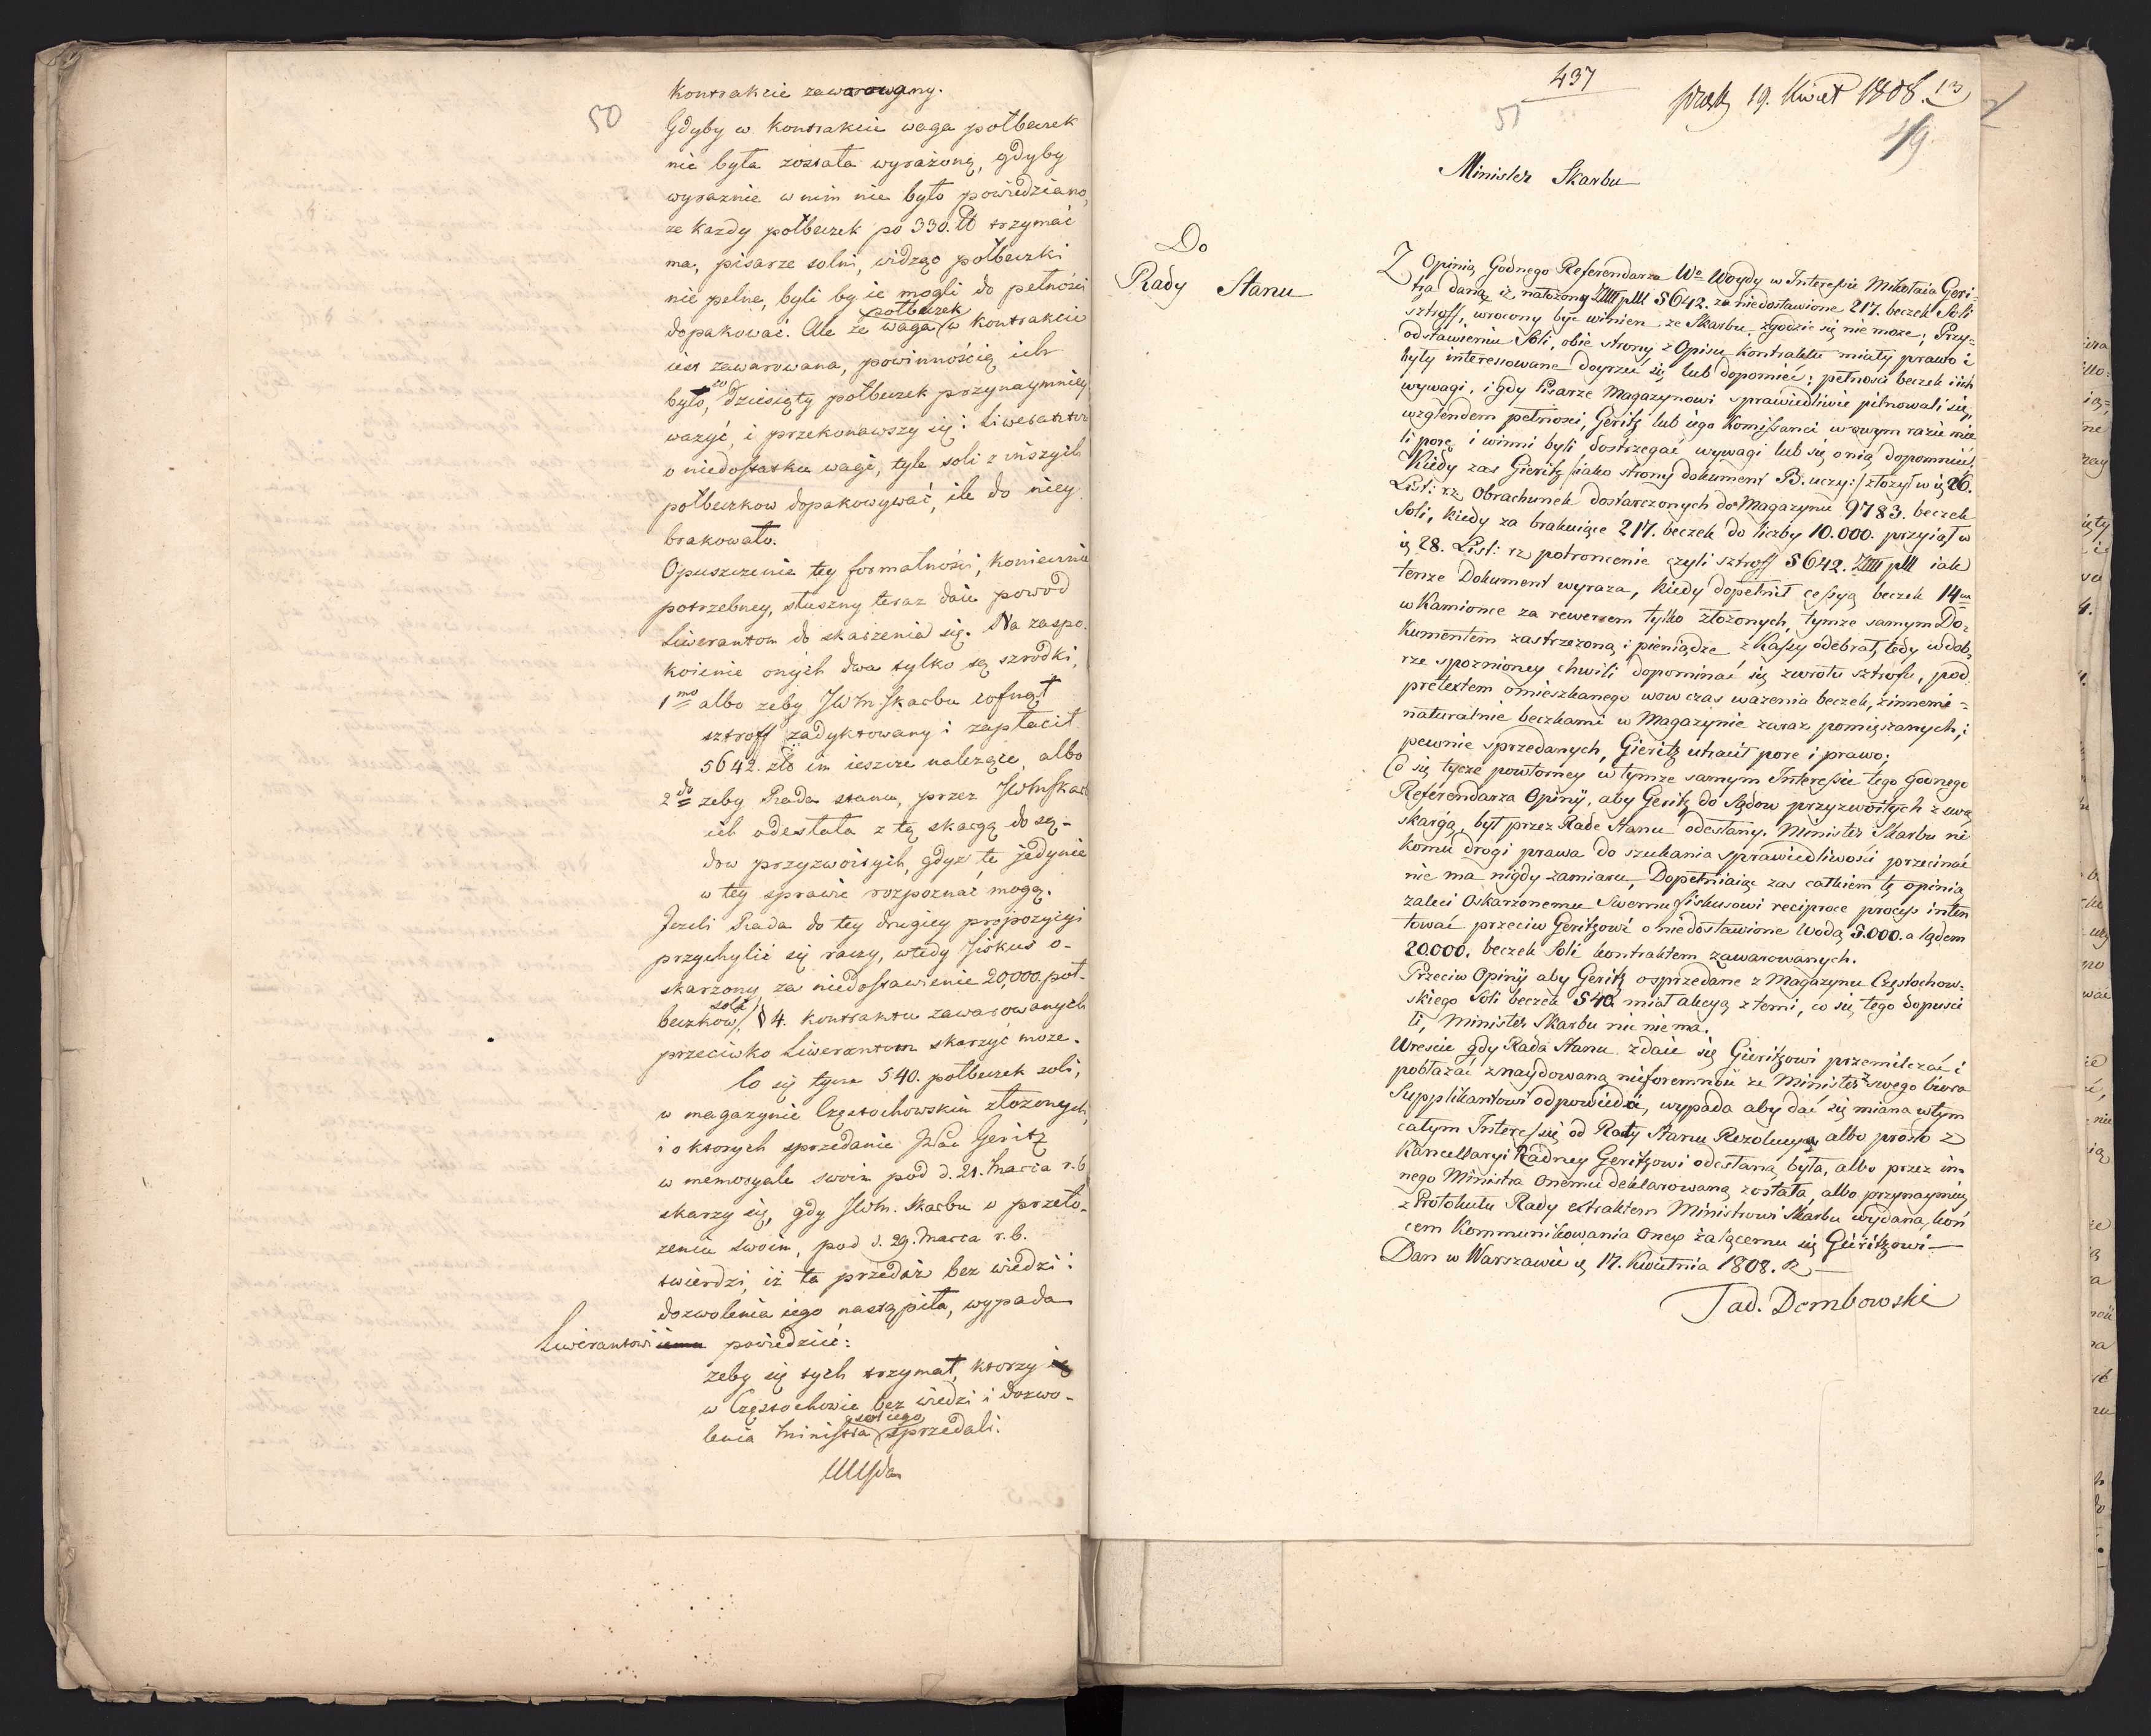 50
kontrakcie zawarowany.
Gdyby w kontrakcie waga połbeczek
nie była została wyrażoną, gdyby
wyraznie w nim nie było powiedziano,
ze kazdy połbeczek po 330. ℔ trzymać
ma, pisarze solni, widząc połbeczki
nie pełne, byli by ie mogli do pełności
dopakować. Ale że waga połbeczek w kontrakcie
iest zawarowana, powinnością ich
było, co dziesiąty połbeczek przynaymniey
ważyć, i przekonawszy się i Liweranton
o niedostatku wagi, tyle soli z inszych
połbeczkow dopakowywać, ile do niey
brakowało.
Opuszczenie tey formalności, koniecznie
potrzebney, słuszny teraz daie powod
Liwerantom do skarzenia się. Na zaspo-
koienie onych dwa tylko są szrodki,
1mo albo zeby JWM. Skarbu cofnął
sztroff zadyktowany i zapłacił
5642. złł im ieszcze należące, albo
2do zeby Rada stanu, przez JWMSkar
ich odesłała z tą skargą do są-
dow przyzwoitych, gdyż te jedynie
w tey sprawie rozpoznać mogą.
Jezeli Rada do tey drugiey propozycyi
przychylić się raczy, wtedy Fiskus o-
skarzony za niedostawienie 20,000 poł-
beczkow soli, § 4. kontraktu zawarowanych
przeciwko Liwerantom skarzyć moze.
Co się tycze 540. połbeczek soli,
w magazynie Częstochowskim złożonych,
i o ktorych sprzedanie JPan Geritz
w memoryale swoim pod d. 21. Marca r. b.
skarzy się, gdy JWM. Skarbu w przeło-
zeniu swoim, pod d. 29. Marca r. b.
twierdzi, iż ta przedaż bez wiedzi i
dozwolenia iego nastąpiła, wypada
Liwerantowi powiedzieć:
zeby się tych trzymał, ktorzy
w Częstochowie bez wiedzi i dozwo-
lenia Ministra sol iego sprzedali.
437
51
19. Kwiet 1808. 13
49
Minister Skarbu
Do
Rady Stanu
Z Opinią Godnego Referendarza Wo Woydy w Interessie Mikołaia Geri-
tza daną iż nałożony złł pll 5642. za niedostawione 217. beczek Soli
sztroff, wrocony być winien ze Skarbu, zgodzić się nie moze; Przy-
odstawieniu Soli, obie strony z Opisu Kontraktu miały prawo i
były interessowane doyrzeć się lub dopomieć; pełności beczek i ich
wywagi, i gdy Pisarze Magazynowi sprawiedliwie pilnowali się,
względem pełności, Geritz lub iego Komissanci w owym razie mie
li porę i winni byli dostrzegać wywagi lub się o nią dopomnieć.
Kiedy zas Gieritz /:iako strony dokument B. uczy:/ złożył w d. 26.
List: rz. Obrachunek dostarczonych do Magazynu 9783. beczek
Soli, kiedy za brakuiące 217. beczek do liczby 10.000. przyiął w
d. 28. List: rz. potroncenie czyli sztroff 5642. złł pll iak
tenże Dokument wyraza, kiedy dopełnił cessyą beczek 14u
w Kamionce za rewersem tylko złożonych, tymze samym Do-
kumentem zastrzezoną i pieniądze z Kassy odebrał, tedy w dob-
rze spoznioney chwili dopominać się zwrotu sztrofu, pod
pretextem omieszkanego wowczas wazenia beczek, z innemi-
naturalnie beczkami w Magazynie zaraz pomięszanych, i
pewnie sprzedanych, Gieritz utracił pore i prawo;
Co się tycze powtorney w tymze samym Interessie tego godnego
Referendarza Opinij, aby Geritz do Sądow przyzwoitych z swą
skargą, był przez Rade Stanu odesłany. Minister Skarbu ni-
komu drogi prawa do szukania sprawiedliwości przecinać
nie ma nigdy zamiaru, Dopełniaiąc zas całkiem tę opinią
zaleci oskarzonemu Swemu fiskusowi reciproce process inten
tować przeciw Geritzowi o niedostawione Wodą 5.000. a lądem
20.000. beczek Soli kontraktem zawarowanych.
Przeciw Opinij aby Geritz o sprzedane z Magazynu Częstochow-
skiego Soli beczek 540. miał akcyą z temi, co się tego dopuści
li, Minister Skarbu nic nie ma.
Wreście gdy Rada Stanu zdaie się Gieritzowi przemilczać i
pobłażać znaydowaną nieforemność ze Minister z swego biura
Supplikantowi odpowiedzi, wypada aby dać się miana w tym
całym Interessie od Rady Stanu Rezolucya albo prosto z
Kancellaryi Radney Geritzowi odesłaną była, albo przez in-
nego Ministra Onemu deklarowaną została, albo przynaymniey
z Protokułu Rady extraktem Ministrowi Skarbu wydana, koń
cem Kommunikowania oney żalącemu się Gieritzowi —
Dan w Warszawie d. 17. Kwietnia 1808. R.
Tad. Dembowski